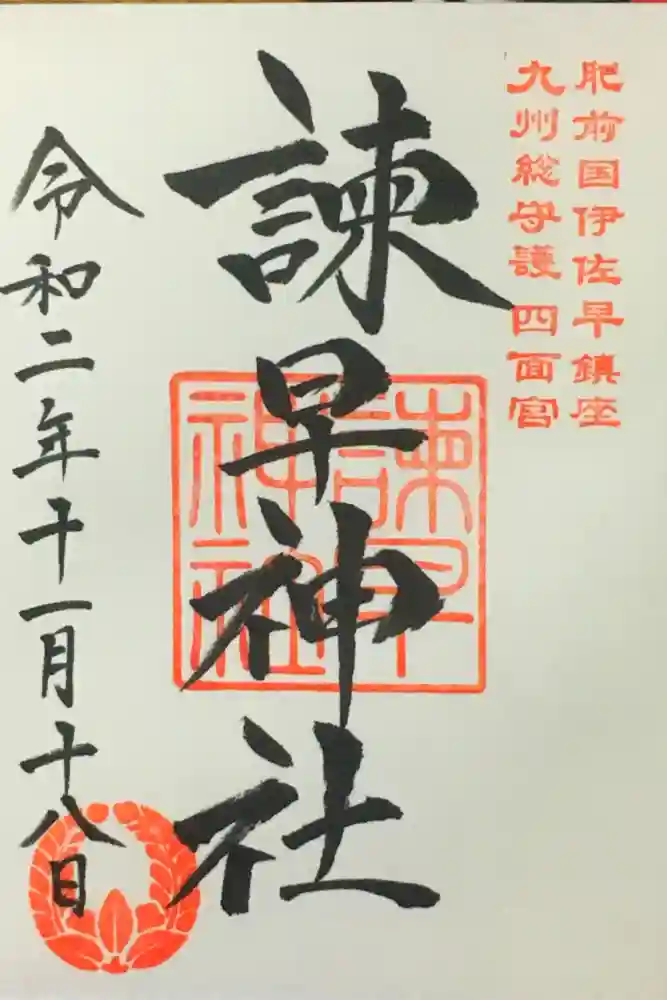 肥前国伊佐早鎮座
九州総守護 四面宮
諫早神社
諫早
神社
令和二年十一月十八日